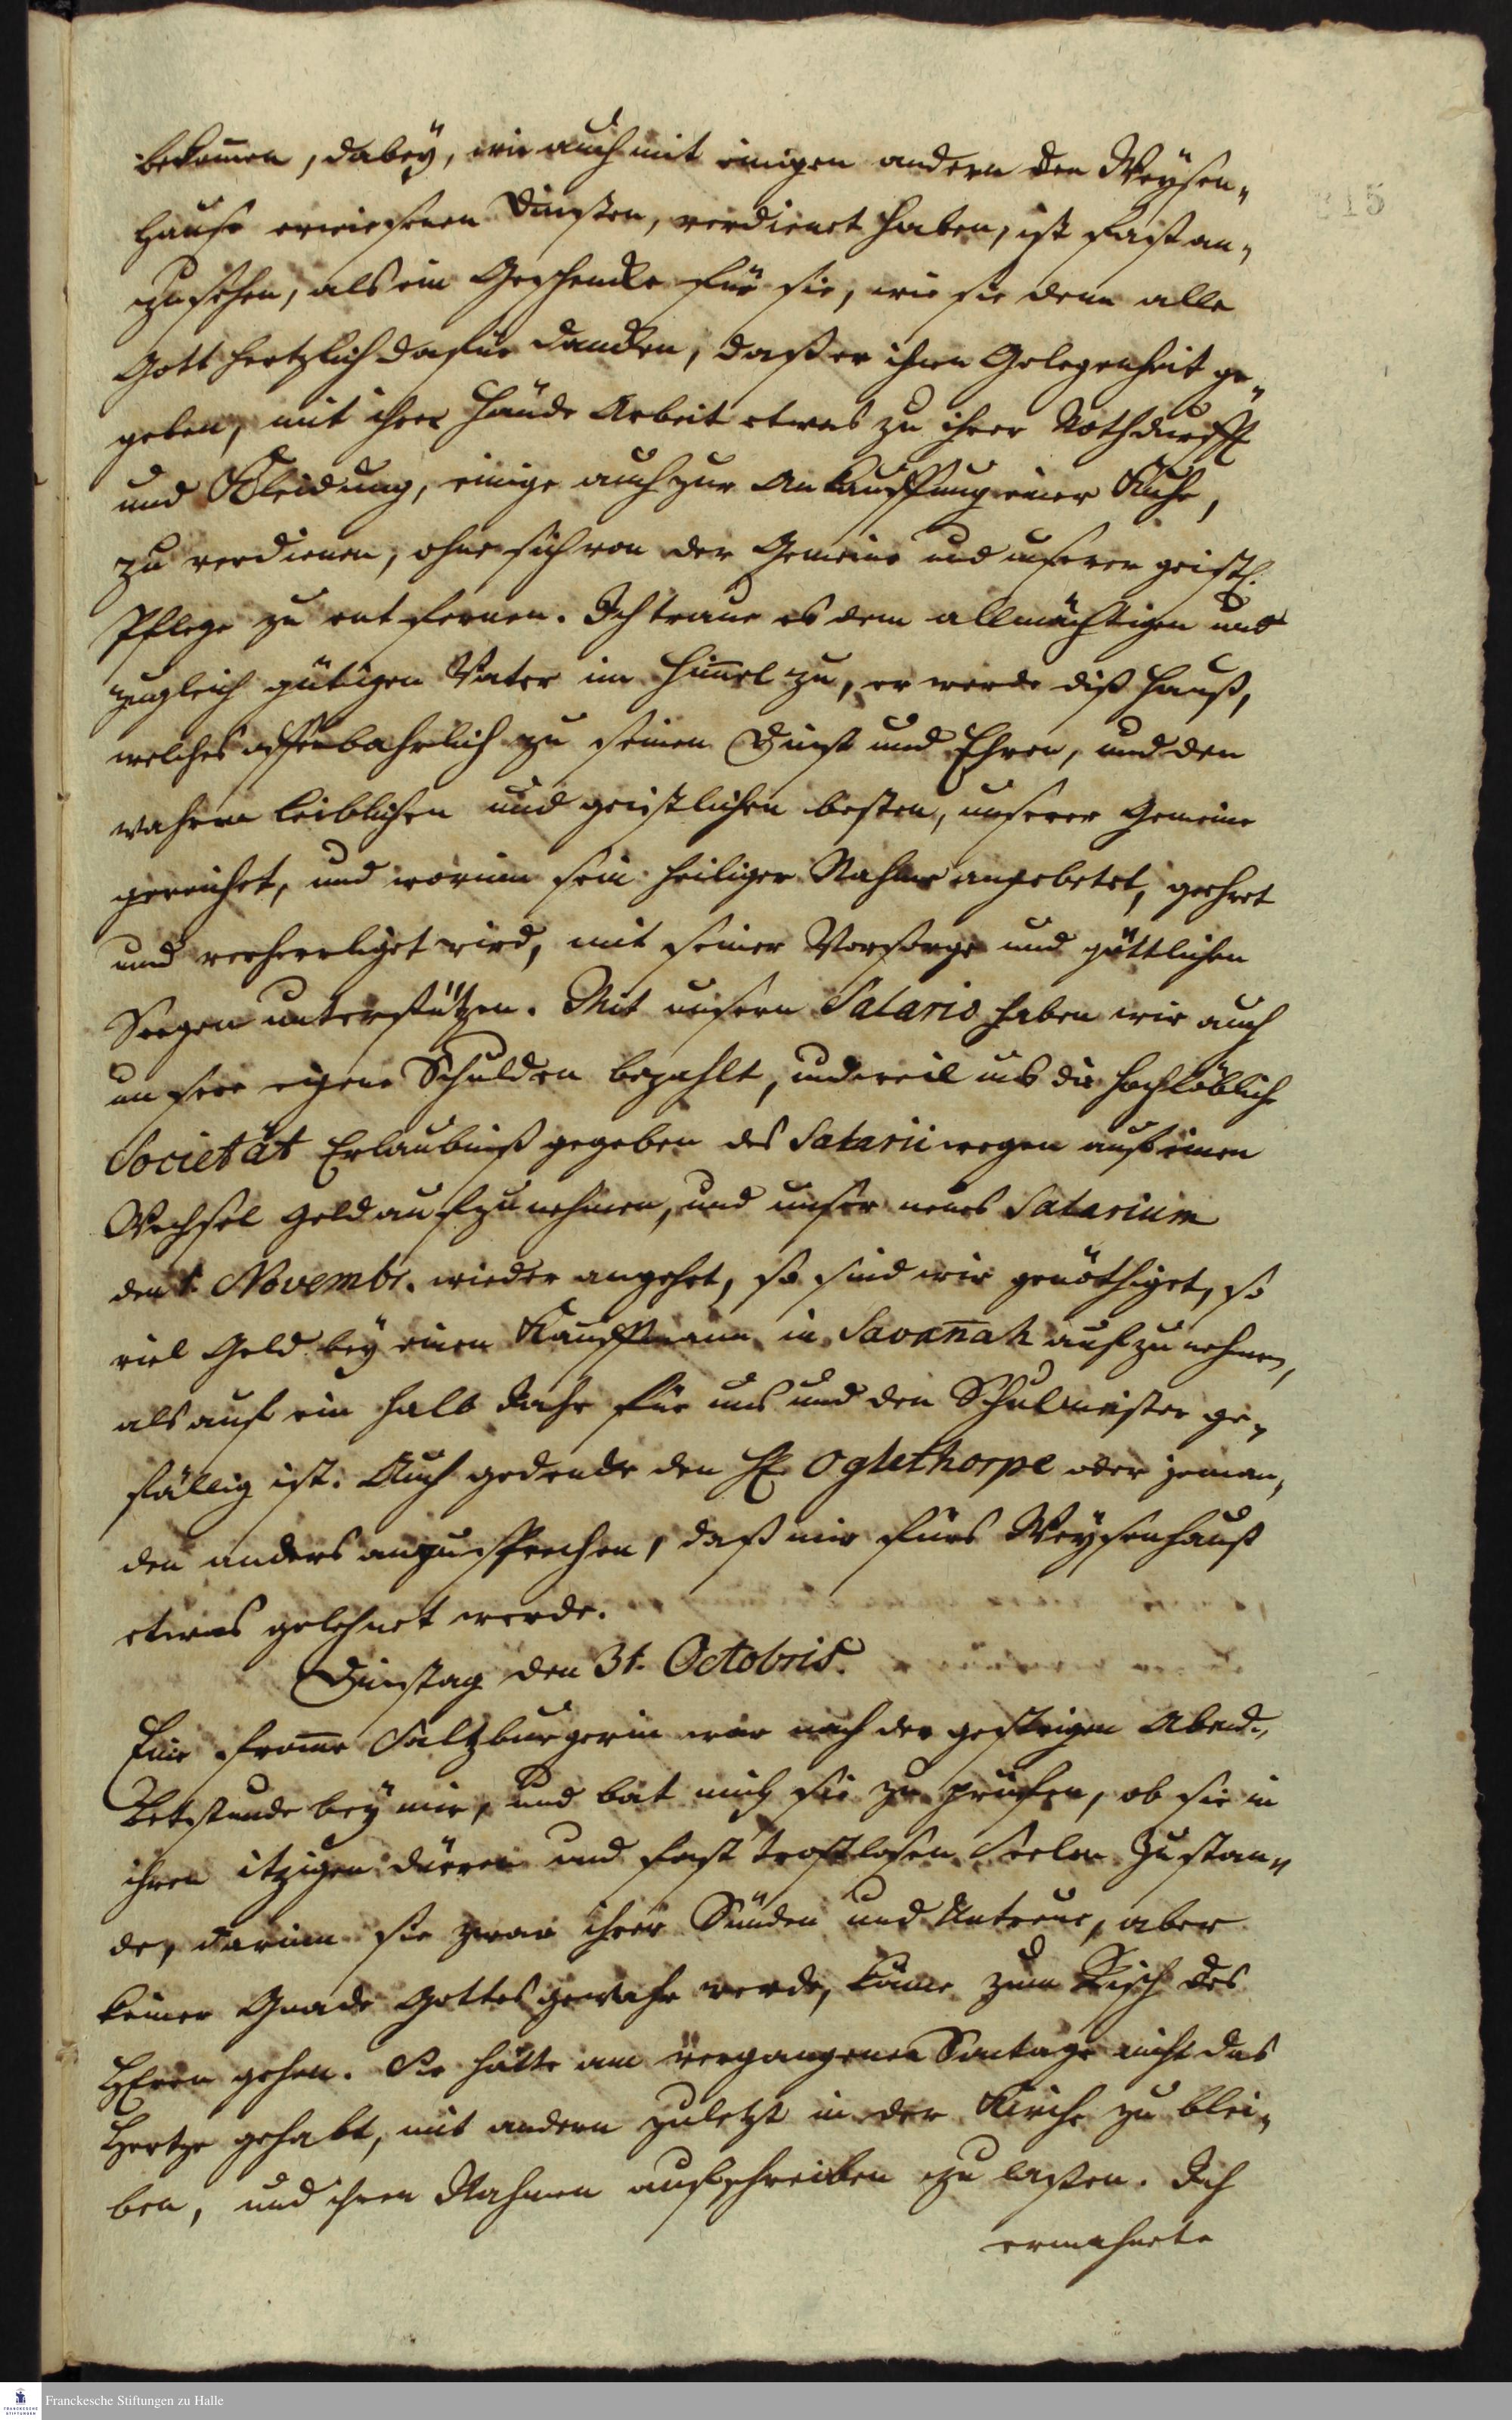 815
bekom̃en, dabey, wie auch mit einigen andern den Weysen„
Hause erwiesenen Diensten, verdienet haben, ist fast an„
zusehen, als ein Geschencke für sie, wie sie denn alle
Gott hertzlich dafür dancken, daß er ihnen Gelegenheit ge„
geben, mit ihrer Hände Arbeit etwas zu ihrer Nothdurfft
und Kleidung, einige auch zur Ankauffung einer Kuhe,
zu verdienen, ohne sich von der Gemeine und unserer geistl.
Pflege zu entfernen. Ich traue es dem allmächtigen und
zugleich gütigen Vater im Him̃el zu, er werde diß Hauß,
welches offenbahrlich zu seinen Dienst und Ehren, und den
wahren leiblichen und geistlichen besten, unserer Gemeine
gereichet, und worinn sein heiliger Nahme angebetet, geehret
und verherrliget wird, mit seiner Vorsorge und göttlichen
Seegen unterstützen. Mit unsern Salario haben wir auch
unsere eigene Schulden bezahlt, und weil uns die hochlöbliche
Societät Erlaubniß gegeben des Salarii wegen auf einen
Wechsel Geld aufzunehmen, und unser neues Salarium
den 1. Novembr. wieder angehet, so sind wir genöthiget, so
viel Geld bey einen Kauffmann in Savan̄ah aufzunehmen,
als auf ein halb Jahr für uns und den Schulmeister ge„
fällig ist. Auch gedencke den H. Oglethorpe oder jeman„
den anders anzusprechen, daß mir fürs Weysenhauß
etwas gelehnet werde.
Dienstag den 31. Octobris.
Eine from̃e Saltzburgerin war nach der gestrigen Abend„
Betstunde bey mir, und bat mich sie zu prüfen, ob sie in
ihren itzigen dürren und fast trostlosen Seelen Zustan„
de, darinn sie zwar ihrer Sünden und Untreue, aber
keiner Gnade Gottes gewahr werde, könne zum Tisch des
HErrn gehen. Sie hätte am vergangenen Sontage nicht das
Hertze gehabt, mit andern zuletzt in der Kirche zu blei„
ben, und ihren Nahmen aufschreiben zu laßen. Ich
ermahnete
Franckesche Stiftungen zu Halle